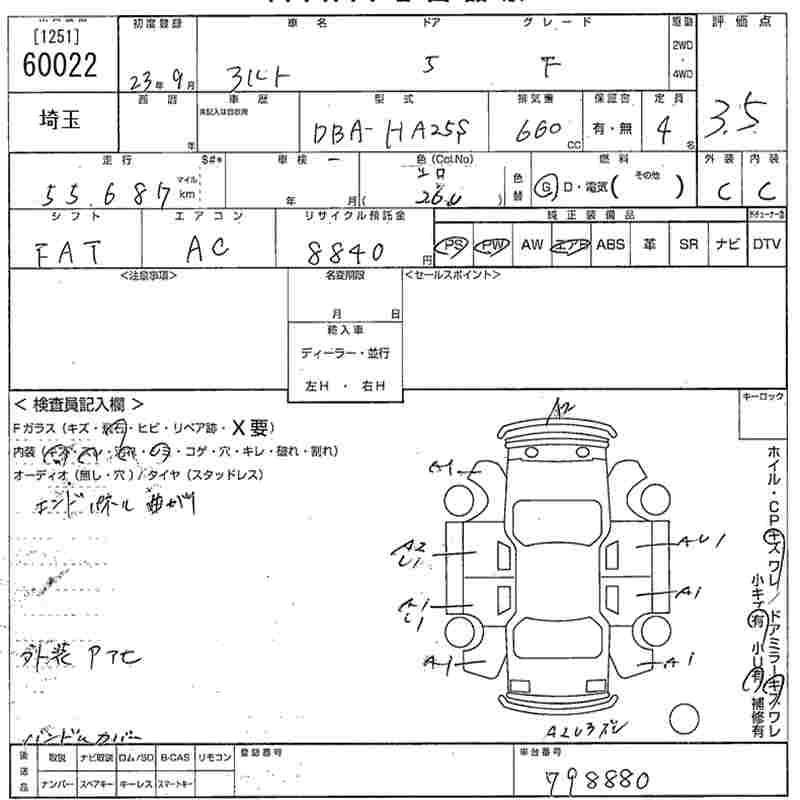 [1251]
60022
初度登録
車名
ドア
グレード
駆動
評価点
23年9月
アルト
5
F
2WD
・
4WD
埼玉
西暦
年
車歴
未記入は自家用
型式
排気量
保証書
定員
DBA-HA25S
660
CC
有・無
4
名
3.5
走行
S#*
車検
色 (Col.No)
燃料
外装
内装
55,687
マイル
km
年
月
シロ
26U
色替
G D・電気( その他 )
C
C
シフト
エアコン
リサイクル預託金
純正装備品
FAT
AC
8840
円
PS
PW
AW
エアB
ABS
革
SR
ナビ
DTV
<注意事項>
名変期限
<セールスポイント>
月
日
輸入車
ディーラー・並行
左H ・ 右H
< 検査員記入欄 >
キーロック
Fガラス (キズ・飛石・ヒビ・リペア跡・X要)
内装 (キズ・スレ・汚れ・シミ・コゲ・穴・キレ・破れ・割れ)
オーディオ (無し・穴) / タイヤ (スタッドレス)
エンドパネル 曲がり
外装 Pアセ
バンドルカバー
A2
A1
A2
U1
AU1
A1
U1
A1
A1
A1
A2U3ズレ
ホイル・CPキズワレ/ドアミラーキズ/ワレ
小キズ有 小U有 補修有
後送品
取説
ナビ取説
ロム/SD
B-CAS
リモコン
ナンバー
スペアキー
キーレス
スマートキー
登録番号
車台番号
798880